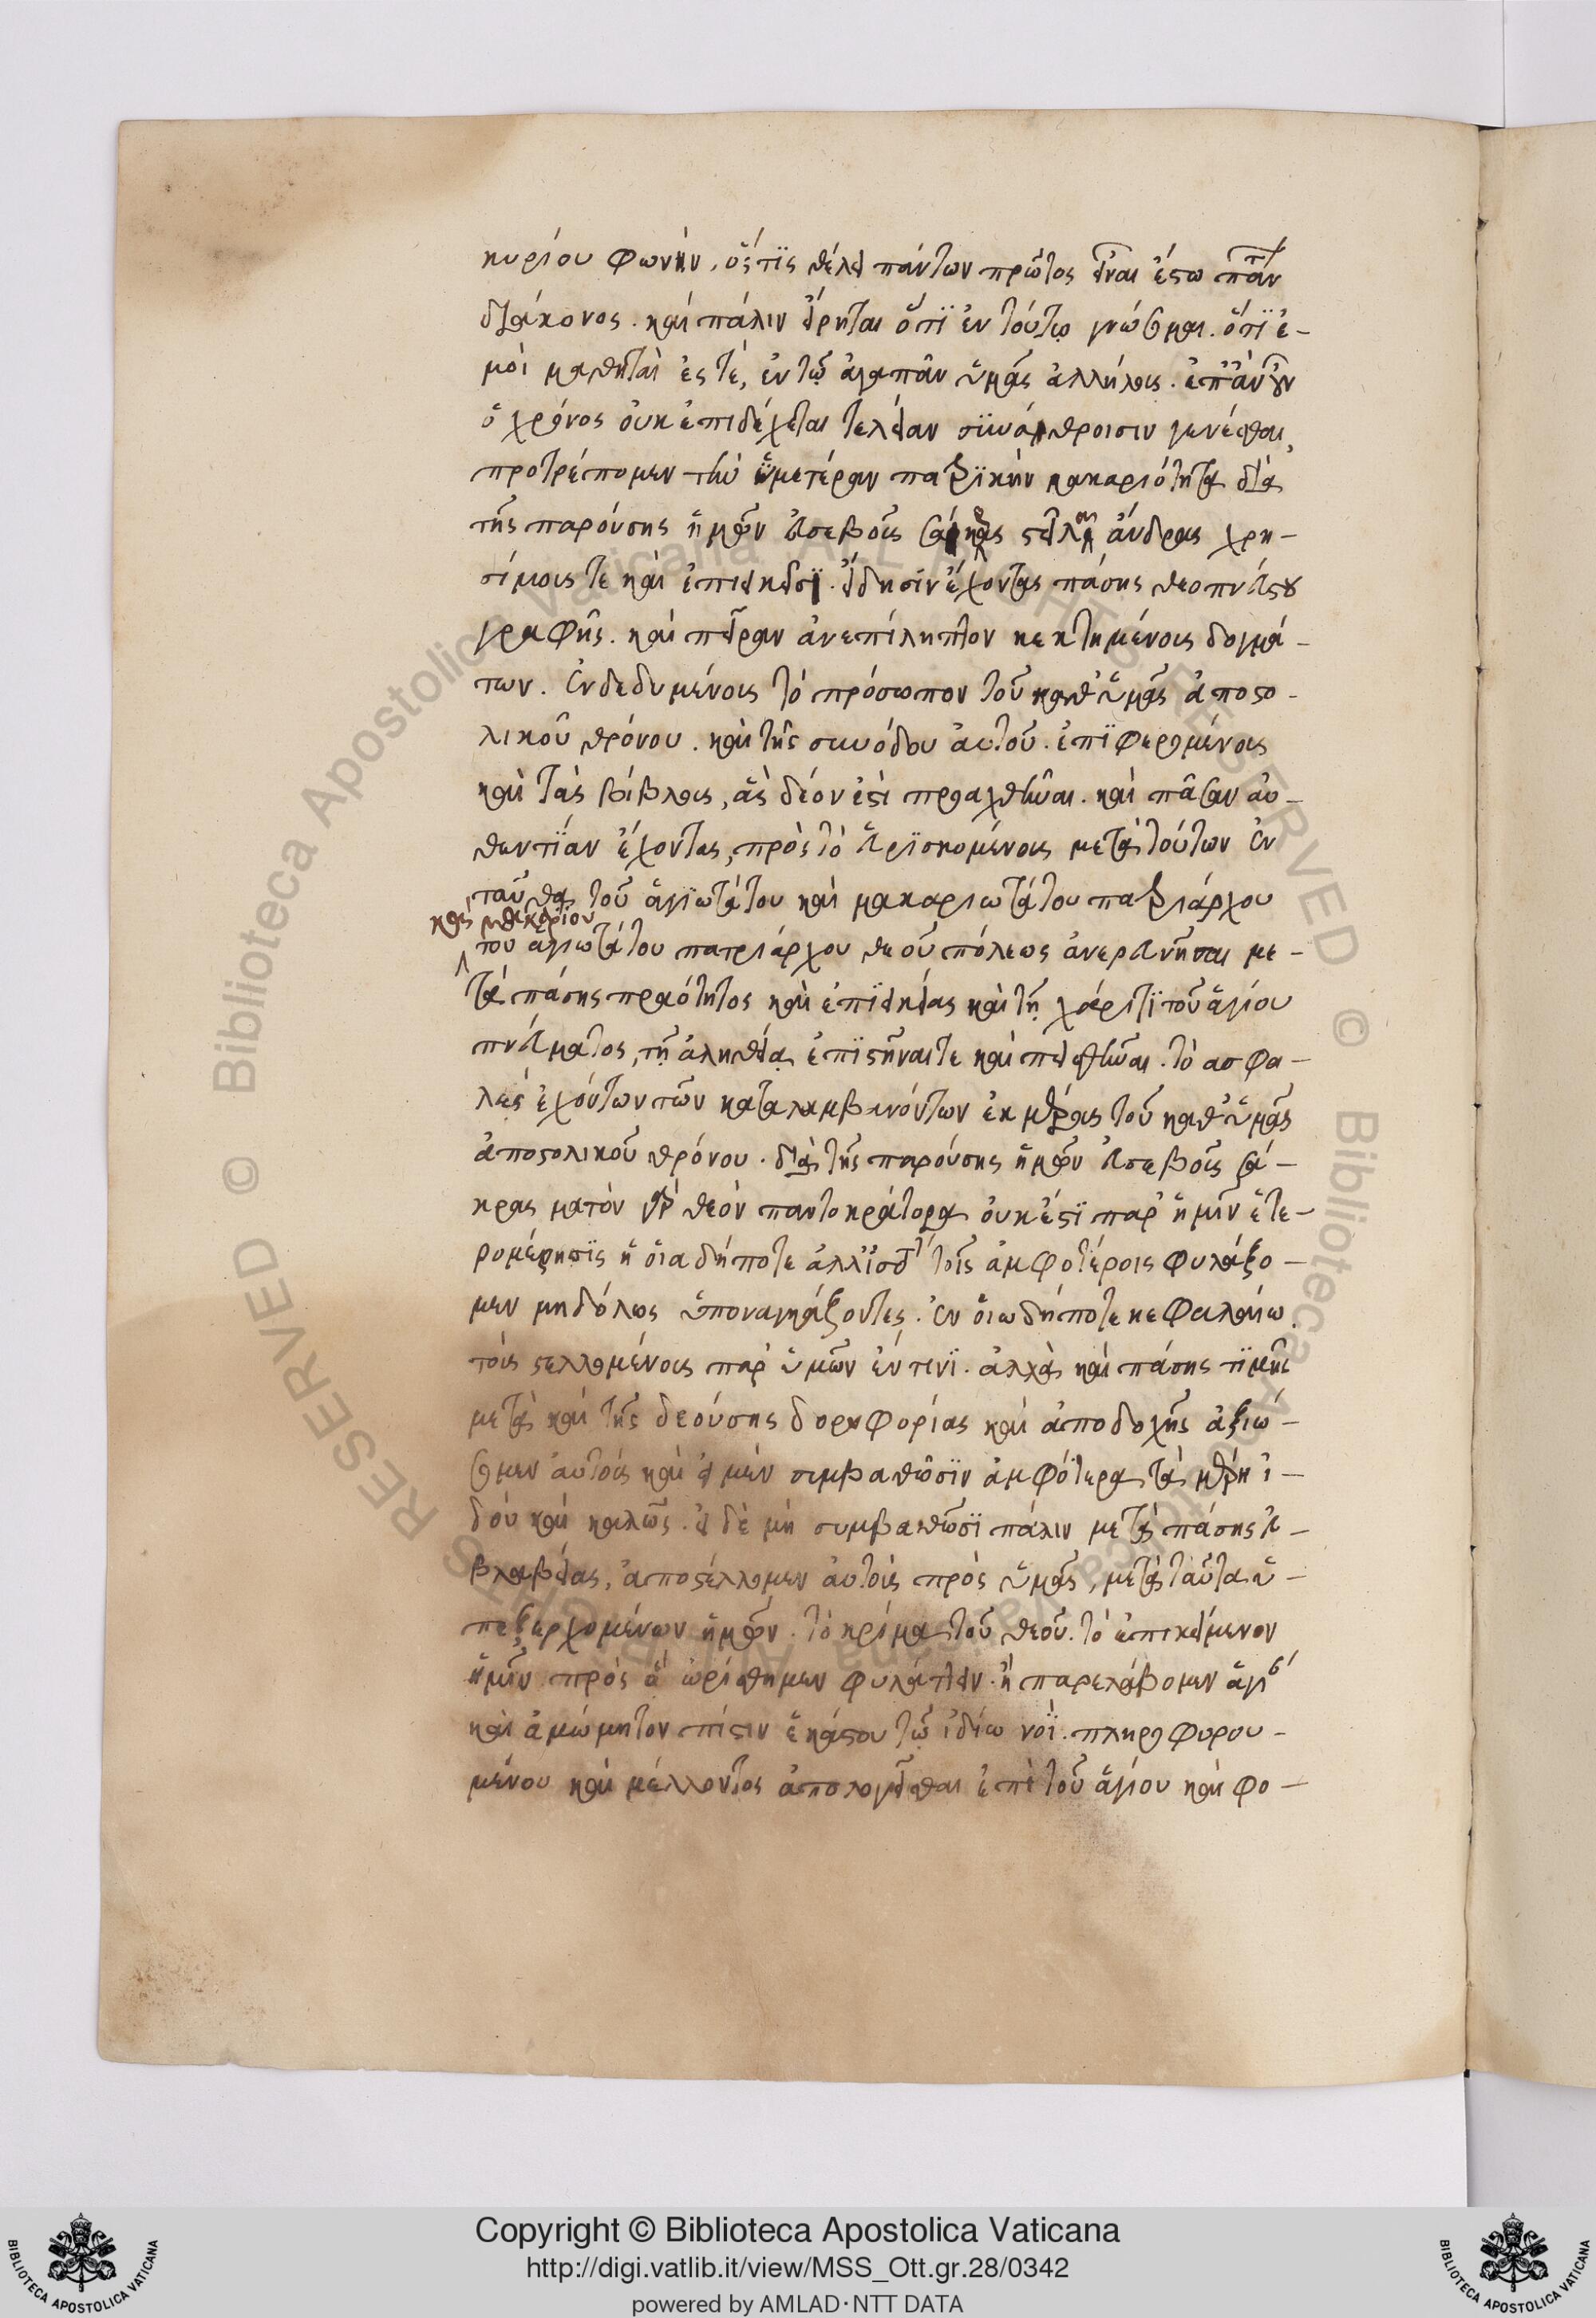 κυρίου φωνήν, ὅστϊς θέλει πάντων πρῶτος εἶναι ἔστω πάντων
διάκονος. καὶ πάλιν εἴρηται ὅτϊ ἐν τούτω γνώσομαι. ὅτϊ ἐ-
μοὶ μαθηταὶ ἐστέ, ἐν τῷ ἀγαπᾶν ὑμᾶς ἀλλήλους. ἐπὰν οὖν
ὁ χρόνος οὐκ ἐπιδέχεται τελείαν συνάθροισιν γενέσθαι,
προτρέπομεν τὴν ὑμετέραν πατρϊκὴν μακαριότητα διὰ
τῆς παρούσης ἡμῶν εὐσεβοῦς στεῖλαι ἄνδρας χρη-
σίμους τε καὶ ἐπιεικεῖς. εἴδησϊν ἔχοντας πάσης θεοπνεύστου
γραφῆς. καὶ πεῖραν ἀνεπίληπτον κεκτημένους δογμά-
των. ἐνδεδυμένους τὸ πρόσωπον τοῦ καθ' ὑμᾶς ἀποστο-
λικοῦ θρόνου. καὶ τῆς συνόδου αὐτοῦ. ἐπϊφερομένους
καὶ τὰς βίβλους, ἃς δέον ἐστὶ προαχθῆναι. καὶ πᾶσαν αὐ-
θεντϊαν ἔχοντας, πρὸς τὸ εὑρϊσκομένους μετὰ τούτων ἐν
ταῦθα τοῦ ἁγϊωτάτου καὶ μακαριωτάτου πατριάρχου
καὶ μακαρίου
του ἁγιωτάτου πατριάρχου θεοῦ πόλεως ἀνερευνῆσαι με-
τὰ πάσης πραότητος καὶ ἐπϊεικείας καὶ τῇ χάριτϊ τοῦ ἁγίου
πνεύματος, τῇ ἀληθείᾳ ἐπϊστῆναι τε καὶ πεισθῆναι. τὸ ασφα-
λὲς ἐχόντων τῶν καταλαμβανόντων ἐκ μέρους τοῦ καθ' ὑμᾶς
ἀποστολικοῦ θρόνου. διὰ τῆς παρούσης ἡμῶν εὐσεβοῦς σά-
κρας ματὸν γὰρ θεὸν παντοκράτορα οὐκ ἔστϊ παρ' ἡμῖν ἑτε-
ρομέρησϊς ἢ οἱα δήποτε ἀλλ' ἰσότητα τοῖς ἀμφοτέροις φυλάξο-
μεν μηδόλως ὑπαναγκάζοντες. ἐν οἱωδήποτε κεφαλαίω
τοὺς στελλομένους παρ' ὑμῶν ἐν τινϊ. ἀλλὰ καὶ πάσης τϊμῆς
μετὰ καὶ τῆς δεούσης δορυφορίας καὶ ἀποδοχῆς ἀξιώ-
σομεν αὐτοὺς καὶ εἰ μὲν συμβαθῶσϊν ἀμφότερα τὰ μέρη ἰ-
δοὺ καὶ καλῶς. εἰ δὲ μὴ συμβαθῶσϊ πάλιν μετὰ πάσης εὐ-
βλαβείας, ἀποστέλλομεν αὐτοὺς πρὸς ὑμᾶς, μετὰ ταῦτα ὑ-
πεξερχομένων ἡμῶν. τὸ κρῖμα τοῦ θεοῦ. τὸ ἐπικείμενον
ἡμῖν πρὸς ἃ ὡρίσθημεν φυλάττειν. ἣ παρελάβομεν ἁγί
καὶ ἀμώμητον πίστιν ἑκάστου τῷ ἰδίω νοΐ. πληροφορου-
μένου καὶ μέλλοντος ἀπολογεῖσθαι ἐπὶ τοῦ ἁγίου καὶ φο-
Copyright © Biblioteca Apostolica Vaticana
http://digi.vatlib.it/view/MSS_Ott.gr.28/0342
powered by AMLAD·NTT DATA